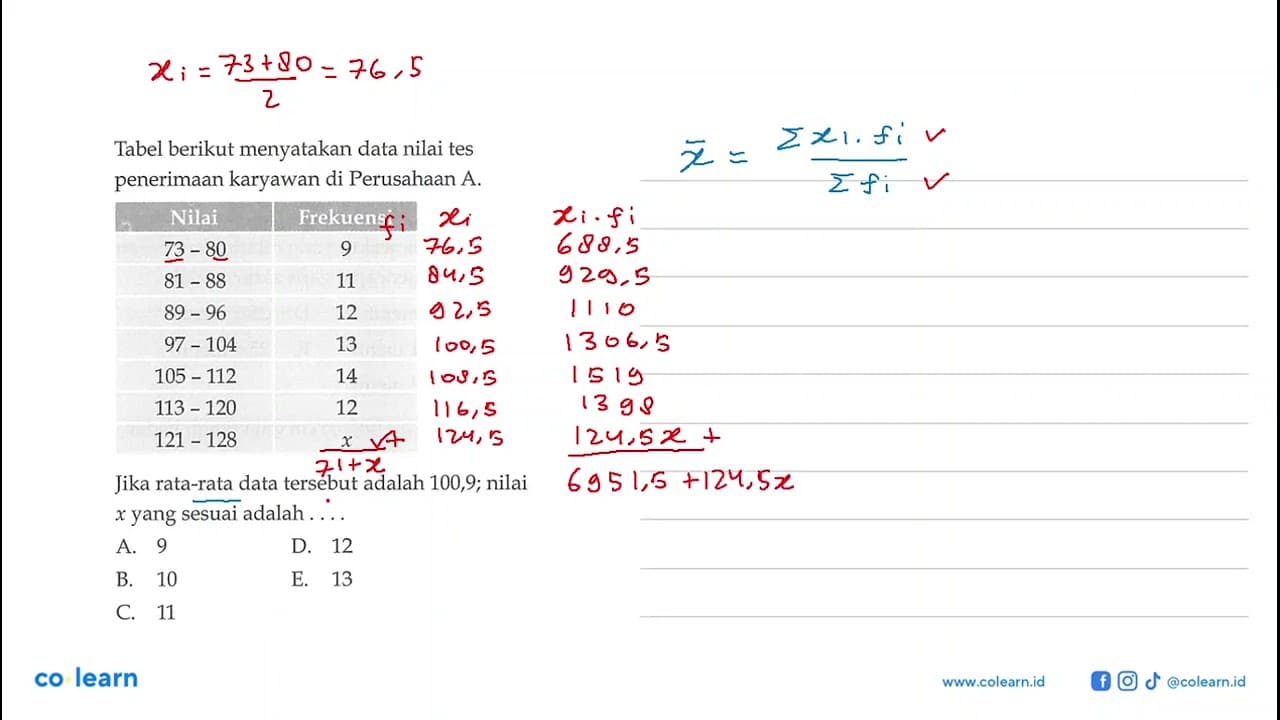 xi = 73+80 / 2 = 76,5
Tabel berikut menyatakan data nilai tes
penerimaan karyawan di Perusahaan A.
x̄ = Σ xi. fi / Σ fi
Nilai Frekuensi fi xi xi. fi
73 – 80 9 76,5 688,5
81 – 88 11 84,5 929,5
89 – 96 12 92,5 1110
97 – 104 13 100,5 1306,5
105 – 112 14 108,5 1519
113 – 120 12 116,5 1398
121 – 128 x + 124,5 124,5x +
71+x 6951,5 +124,5x
Jika rata-rata data tersebut adalah 100,9; nilai
x yang sesuai adalah . . . .
A. 9 D. 12
B. 10 E. 13
C. 11
co learn www.colearn.id @colearn.id